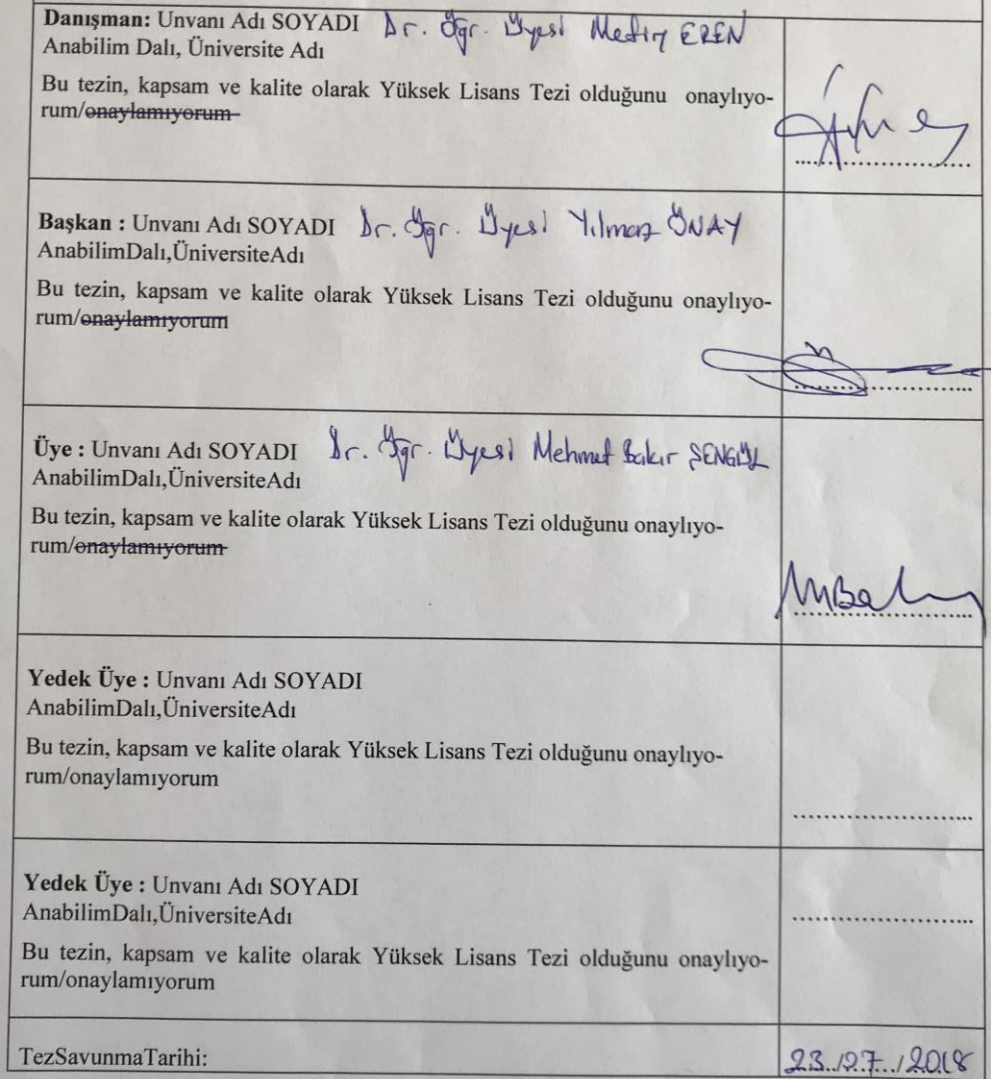 Danışman: Unvanı Adı SOYADI Dr. Öğr. Üyesi Metin EREN
Anabilim Dalı, Üniversite Adı
Bu tezin, kapsam ve kalite olarak Yüksek Lisans Tezi olduğunu onaylıyo-
rum/onaylamıyorum
Başkan : Unvanı Adı SOYADI Dr. Öğr. Üyesi Yılmaz ÖNAY
AnabilimDalı,ÜniversiteAdı
Bu tezin, kapsam ve kalite olarak Yüksek Lisans Tezi olduğunu onaylıyo-
rum/onaylamıyorum
Üye : Unvanı Adı SOYADI Dr. Öğr. Üyesi Mehmet Bakır ŞENGÜL
AnabilimDalı,ÜniversiteAdı
Bu tezin, kapsam ve kalite olarak Yüksek Lisans Tezi olduğunu onaylıyo-
rum/onaylamıyorum
Yedek Üye : Unvanı Adı SOYADI
AnabilimDalı,ÜniversiteAdı
Bu tezin, kapsam ve kalite olarak Yüksek Lisans Tezi olduğunu onaylıyo-
rum/onaylamıyorum
Yedek Üye : Unvanı Adı SOYADI
AnabilimDalı,ÜniversiteAdı
Bu tezin, kapsam ve kalite olarak Yüksek Lisans Tezi olduğunu onaylıyo-
rum/onaylamıyorum
TezSavunmaTarihi: 23../07../2018